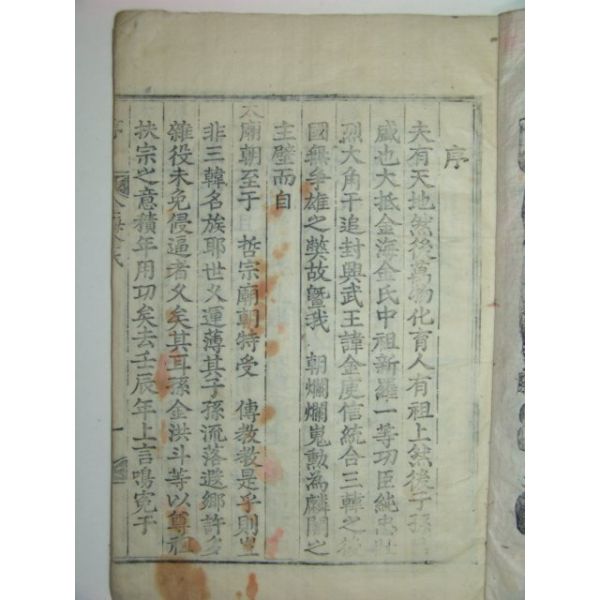 序
夫有天地然後萬物化育人有祖上然後子孫
咸也大抵金海金氏中祖新羅一等功臣純忠
烈大角干追封興武王諱金庾信統合三韓之後
國無爭雄之獘故曁我 朝爛爛嵬勳為麟閣之
主壁而自
太廟朝至于 哲宗廟朝特受 傳教教是乎則豈
非三韓名族耶世乂運薄其子孫流落遐鄉許多
雜役未免侵逼者乂矣其耳孫金洪斗等以尊祖
挾宗之意積年用功矣去壬辰年上言鳴寃于
序 金海金氏 一